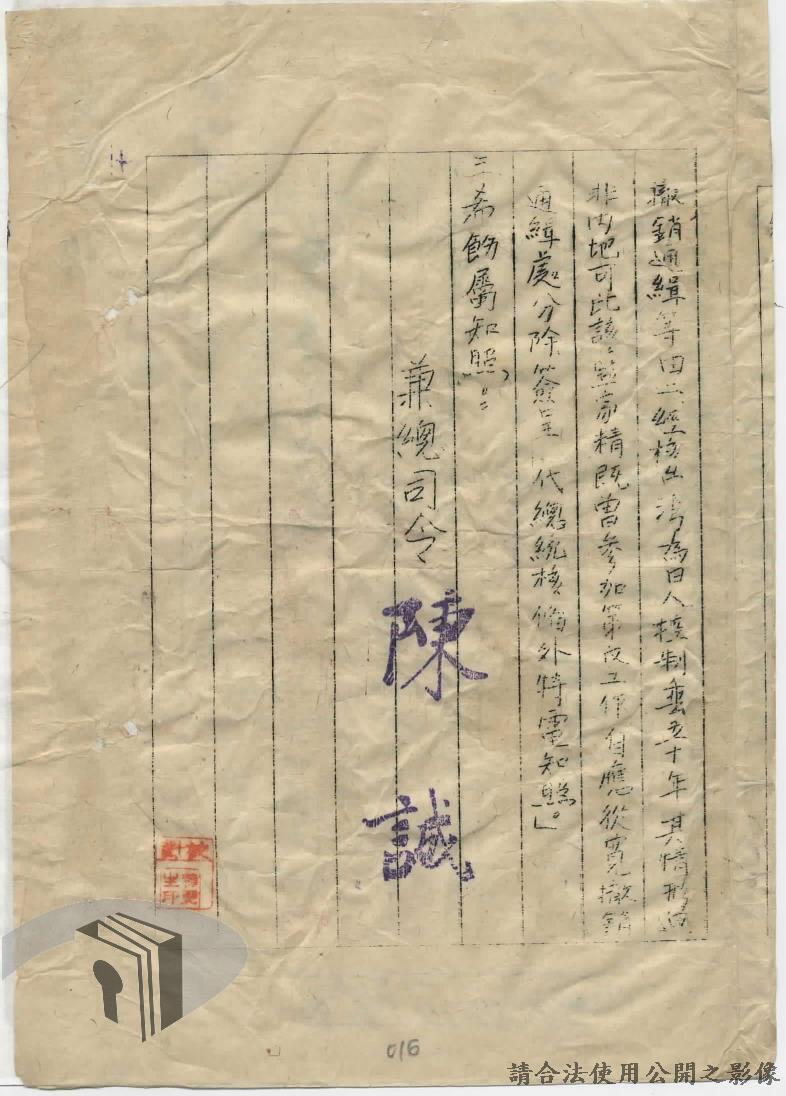 撤銷通緝等由二、經核台灣為日人控制垂五十年其情形迥
非內地可比該 精既曾參加策反工作自應從寬撤銷
通緝處分除簽呈 代總統核備外特電知照。」
三、希飭屬知照。
兼總司令 陳誠
校對
016
請合法使用公開之影像